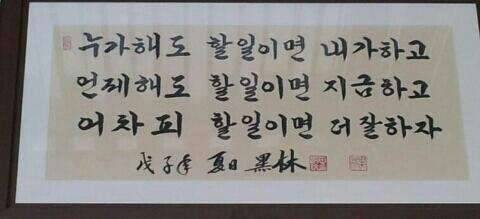 누가해도 할일이면 내가하고
언제해도 할일이면 지금하고
어차피 할일이면 더잘하자
戊子年 夏日 黑林